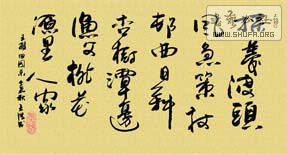 採菱渡頭
風急策杖
邨西日斜
杏樹潭邊
漁父桃花
源里人家
王維田園樂
WWW.SHUFA.ORG